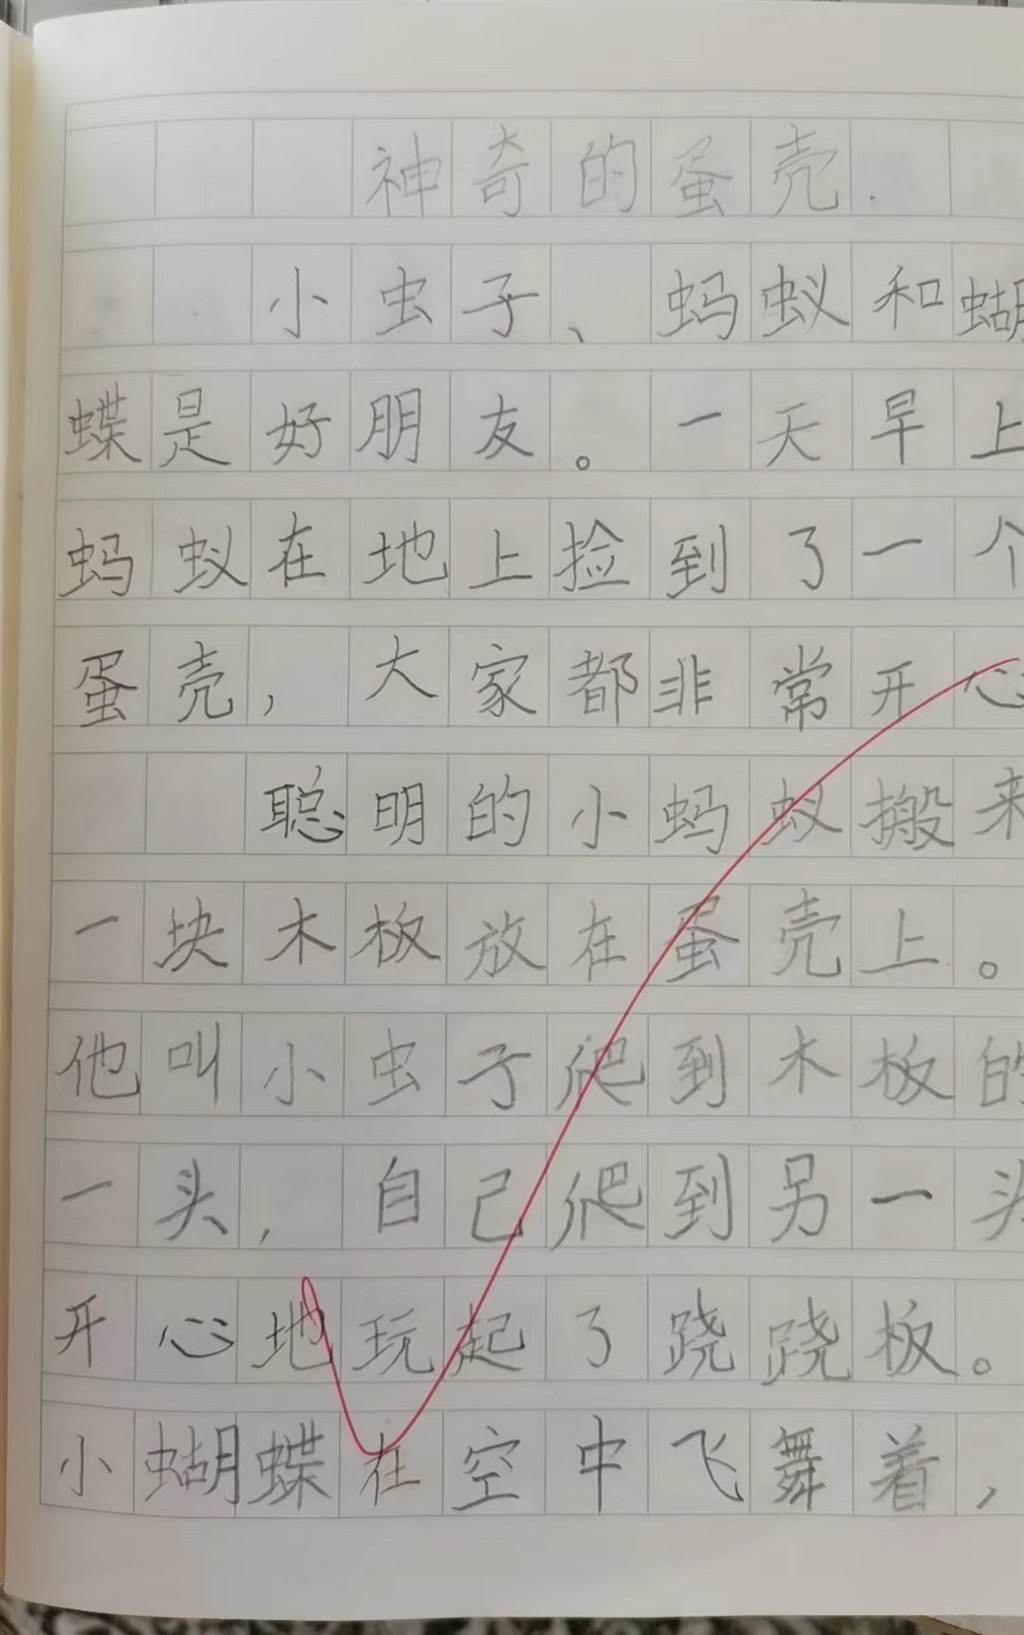 神奇的蛋壳.
小虫子、蚂蚁和蝴
蝶是好朋友。一天早上
蚂蚁在地上捡到了一个
蛋壳,大家都非常开心
聪明的小蚂蚁搬来
一块木板放在蛋壳上。
他叫小虫子爬到木板的
一头,自己爬到另一头
开心地玩起了跷跷板。
小蝴蝶在空中飞舞着,